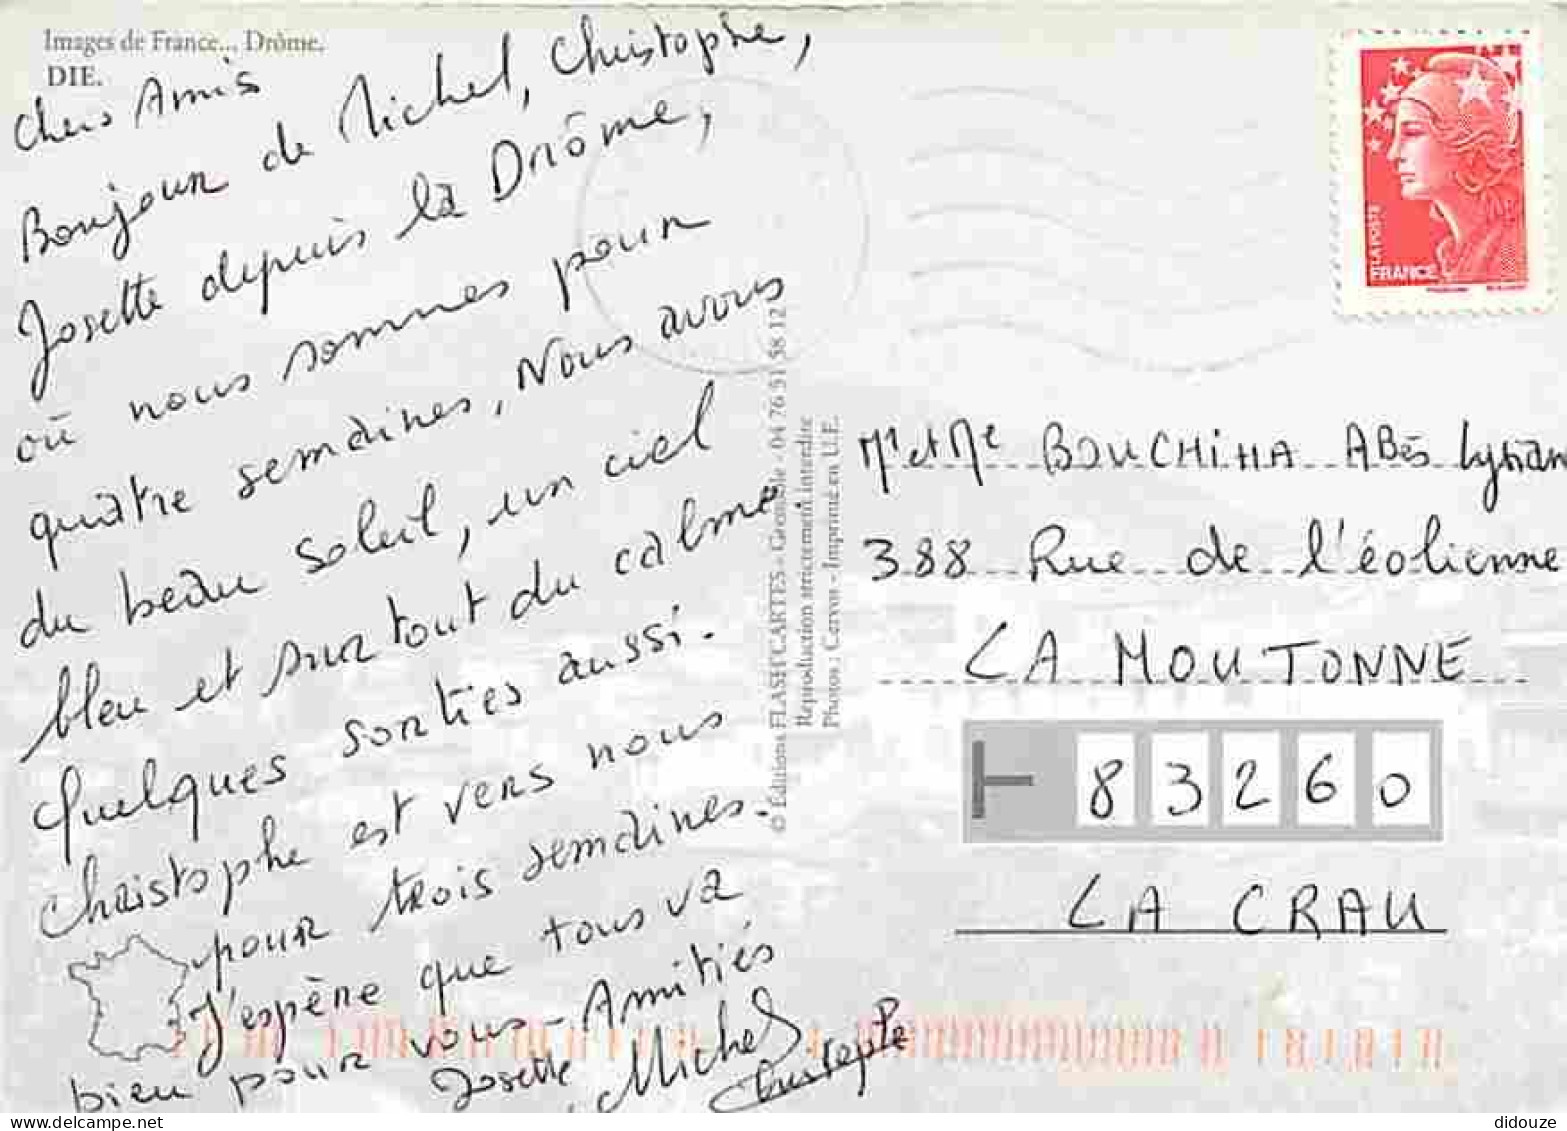 Images de France... Drôme.
DIE.
Chers Amis
Bonjour de Michel, Christophe,
Josette depuis la Drôme,
où nous sommes pour
quatre semaines, Nous avons
du beau soleil, un ciel
bleu et surtout du calme
Quelques sorties aussi.
Christophe est vers nous
pour trois semaines.
J'espère que tous va
bien pour vous - Amitiés
Josette, Michel
Christophe
© Éditions FLASH CARTES - Grenoble - 04 76 51 58 12
Reproduction strictement interdite
Photos : Cervos - Imprimé en U.E.
LA POSTE
FRANCE
Mr et Me BOUCHIHA ABès
388 Rue de l'éolienne
LA MOUTONNE
83260
LA CRAU
didouze